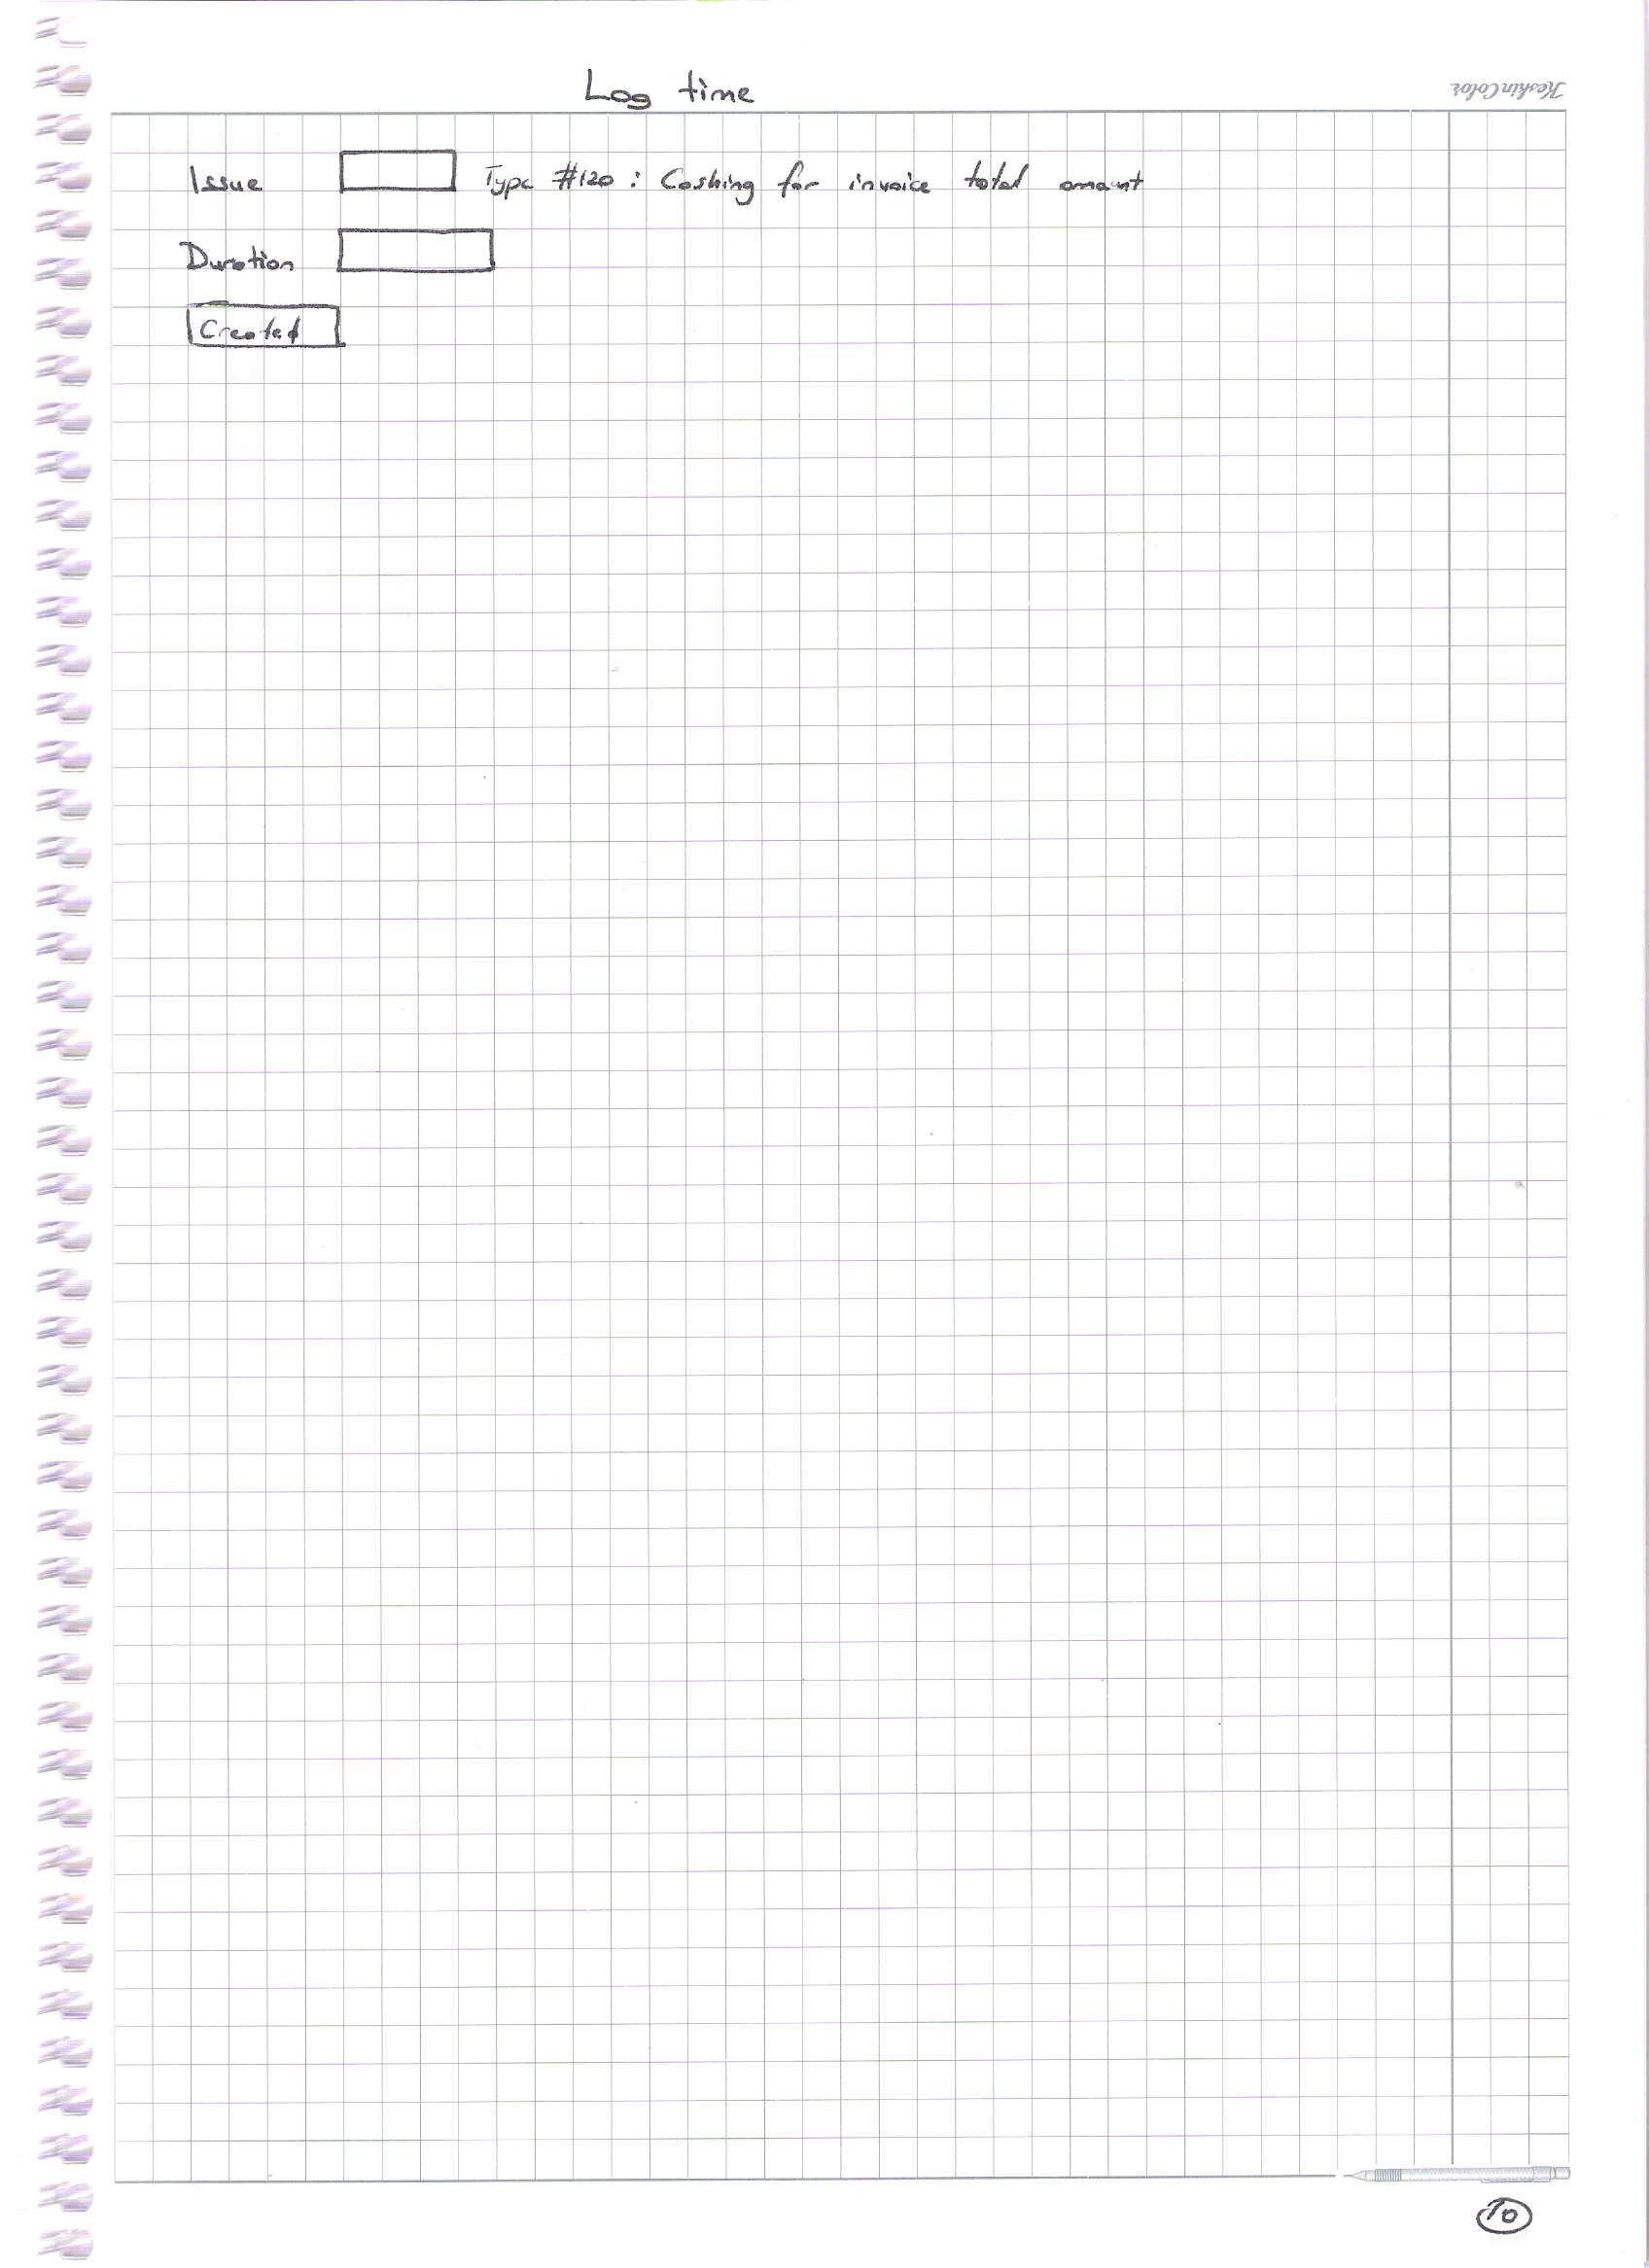 Log time
KeskinColor
Issue Type #120 : Cashing for invoice total amount
Duration
Created
10